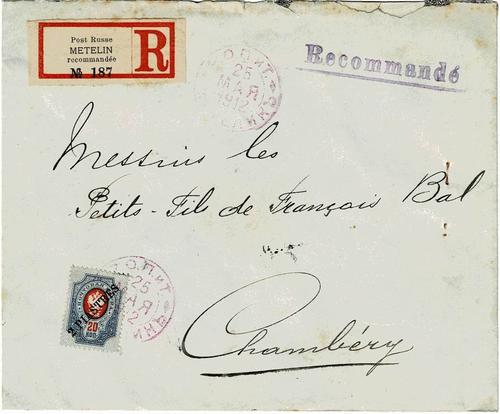 Post Russe
METELIN
recommandée
№ 187
R
Recommandé
25
МАЯ
1912
Messieurs les
Petits-Fils de François Bal
Chambéry
2 PIASTRES
20
КОП
О.П.И.Т.
25
МАЯ